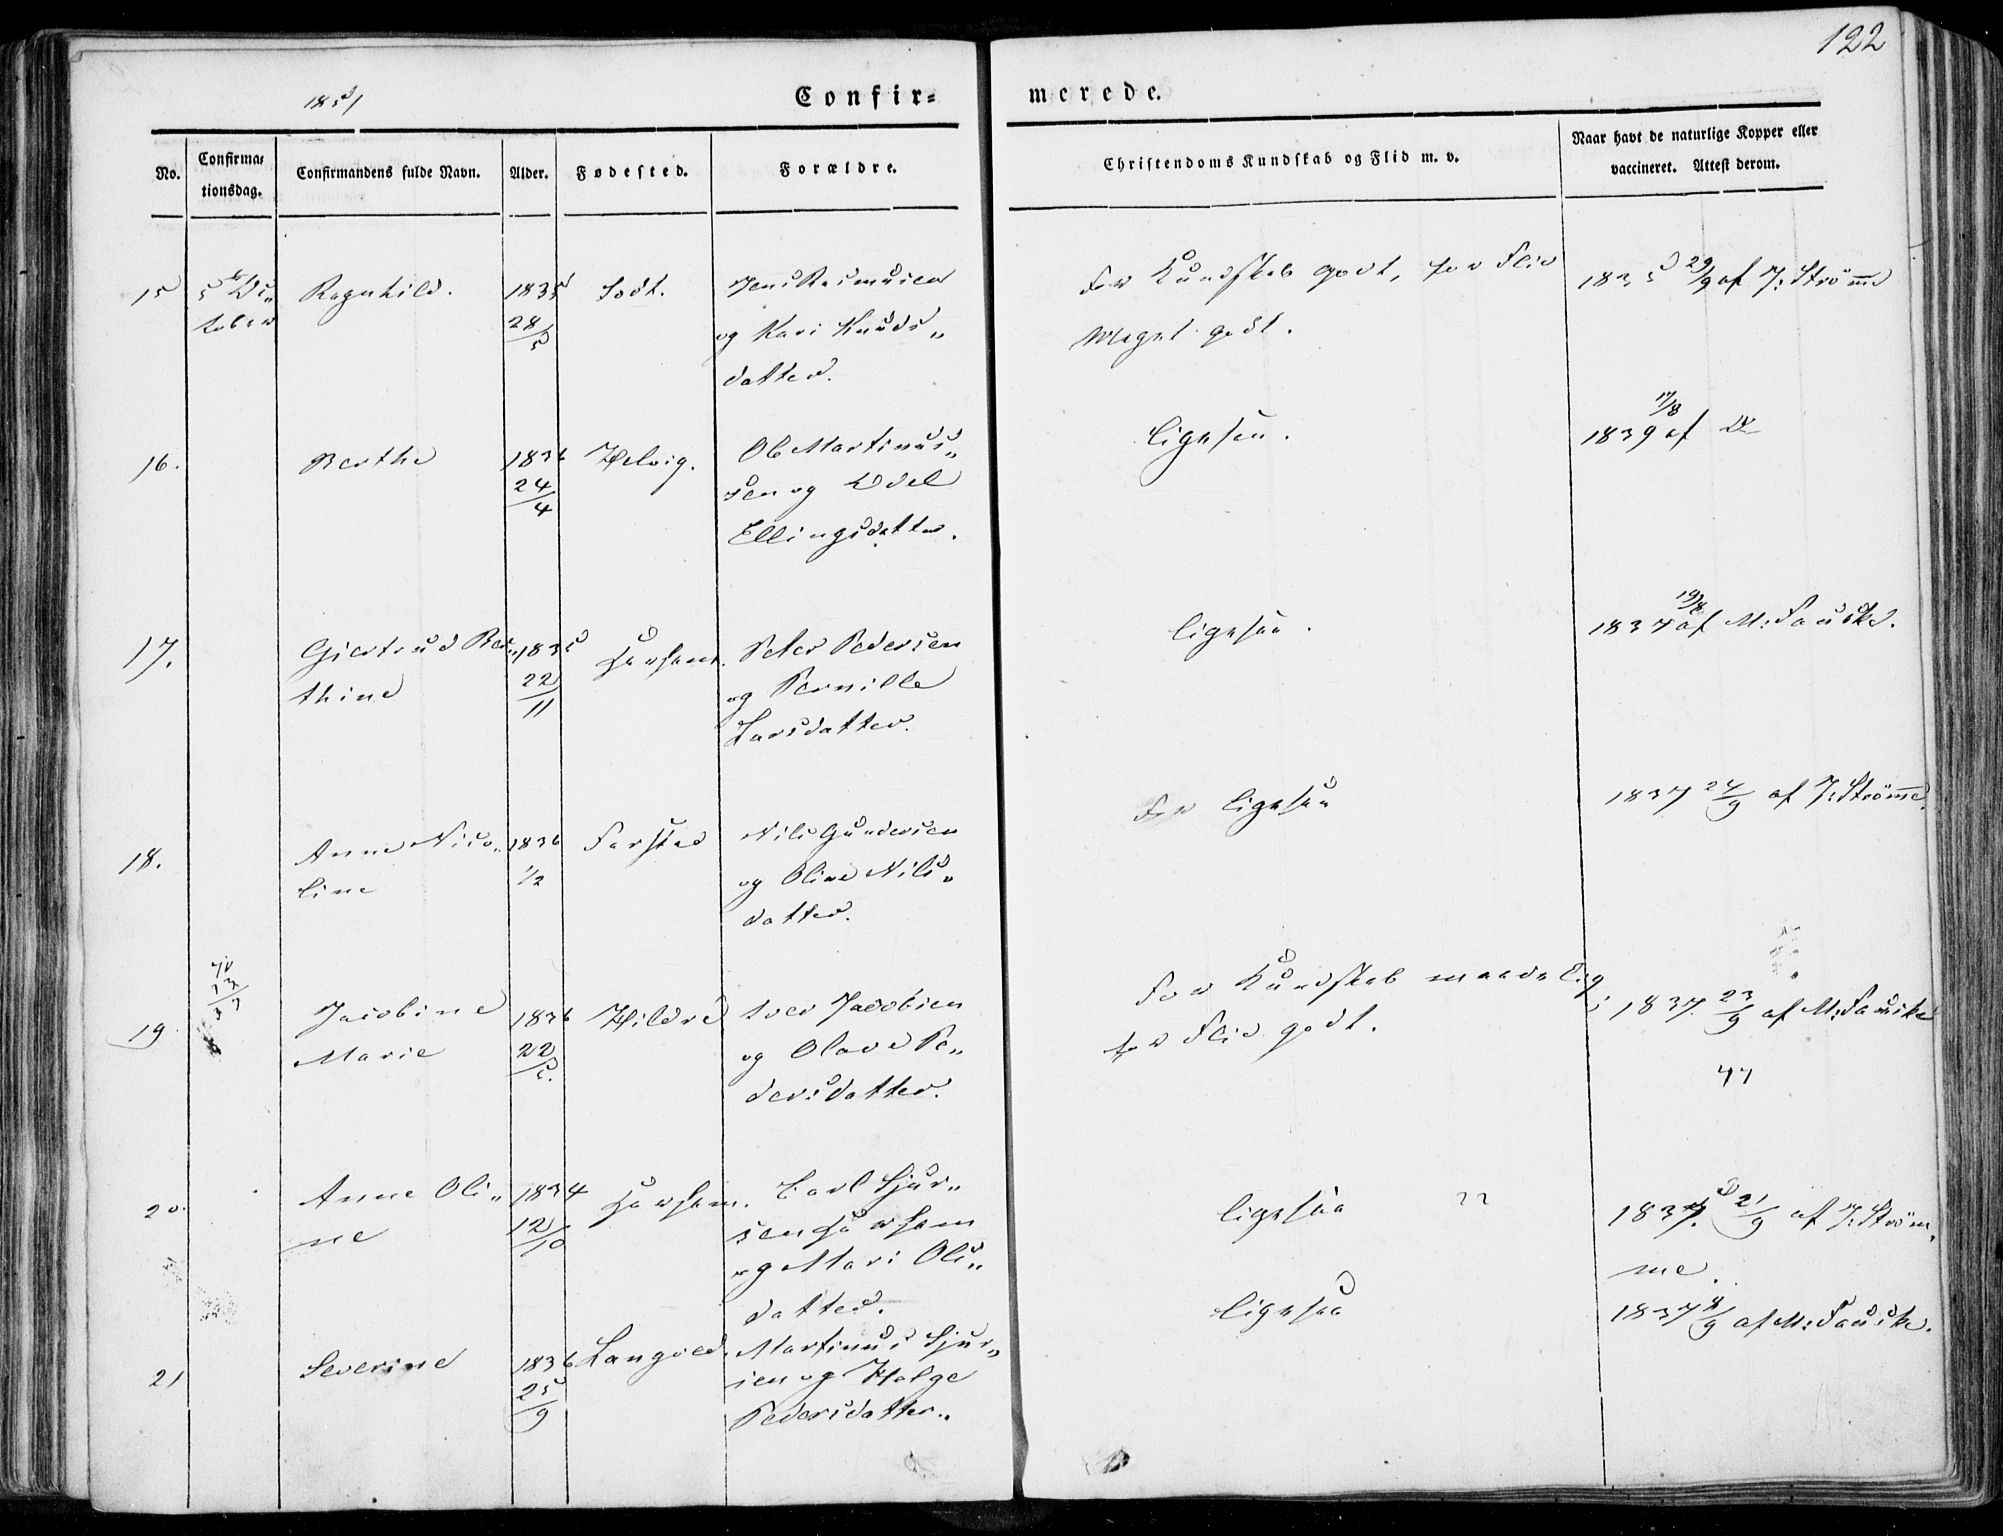 122
1851
Confir= merede.
No.
Confirma=
tionsdag.
Confirmandens fulde Navn.
Alder.
Fødested.
Forældre.
Christendoms Kundskab og Flid m. v.
Naar havt de naturlige Kopper eller
vaccineret. Attest derom.
15
5te Oc„
tober
Ragnhild.
1835
28/5
Jens Rasmusen
og Kari Knuds„
datter.
For Kundskab godt, for Flid
Meget godt.
1835 29/9 af J: Strömme
16.
Berthe
1836
24/4
Helvig.
Ole Martinus„
sen og Edel
Ellingsdatter.
ligesaa.
17/8
1839 af
17.
Giertrud Ber„
thine
1835
22/11
Peter Pedersen
og Pernille
Larsdatter.
ligesaa.
19/8
1837 af M: Fauske.
18.
Anne Nico„
line
1836
1/2
Farstad
Nils Gundersen
og Oline Nils„
datter.
For ligesaa
1837 24/9 af J: Strömme.
19
Jacobine
Marie
1836
22/5.
Hildre
Iver Jacobsen
og Olave Pe„
dersdatter.
For Kundskab maadelig
for Flid godt.
1837. 23/9 af M: Fauske
20.
Anne Oli„
ne
1834
12/10
Carl Sjur„
sen
og Mari Ols„
datter.
ligesaa
1837. 21/9 af J: Ström„
me.
21
Severine
1836
25/9
Langøed.
Martinus Sjur„
sen og Helge
Pedersdatter.
ligesaa
1837 4/9 af M: Fauske.